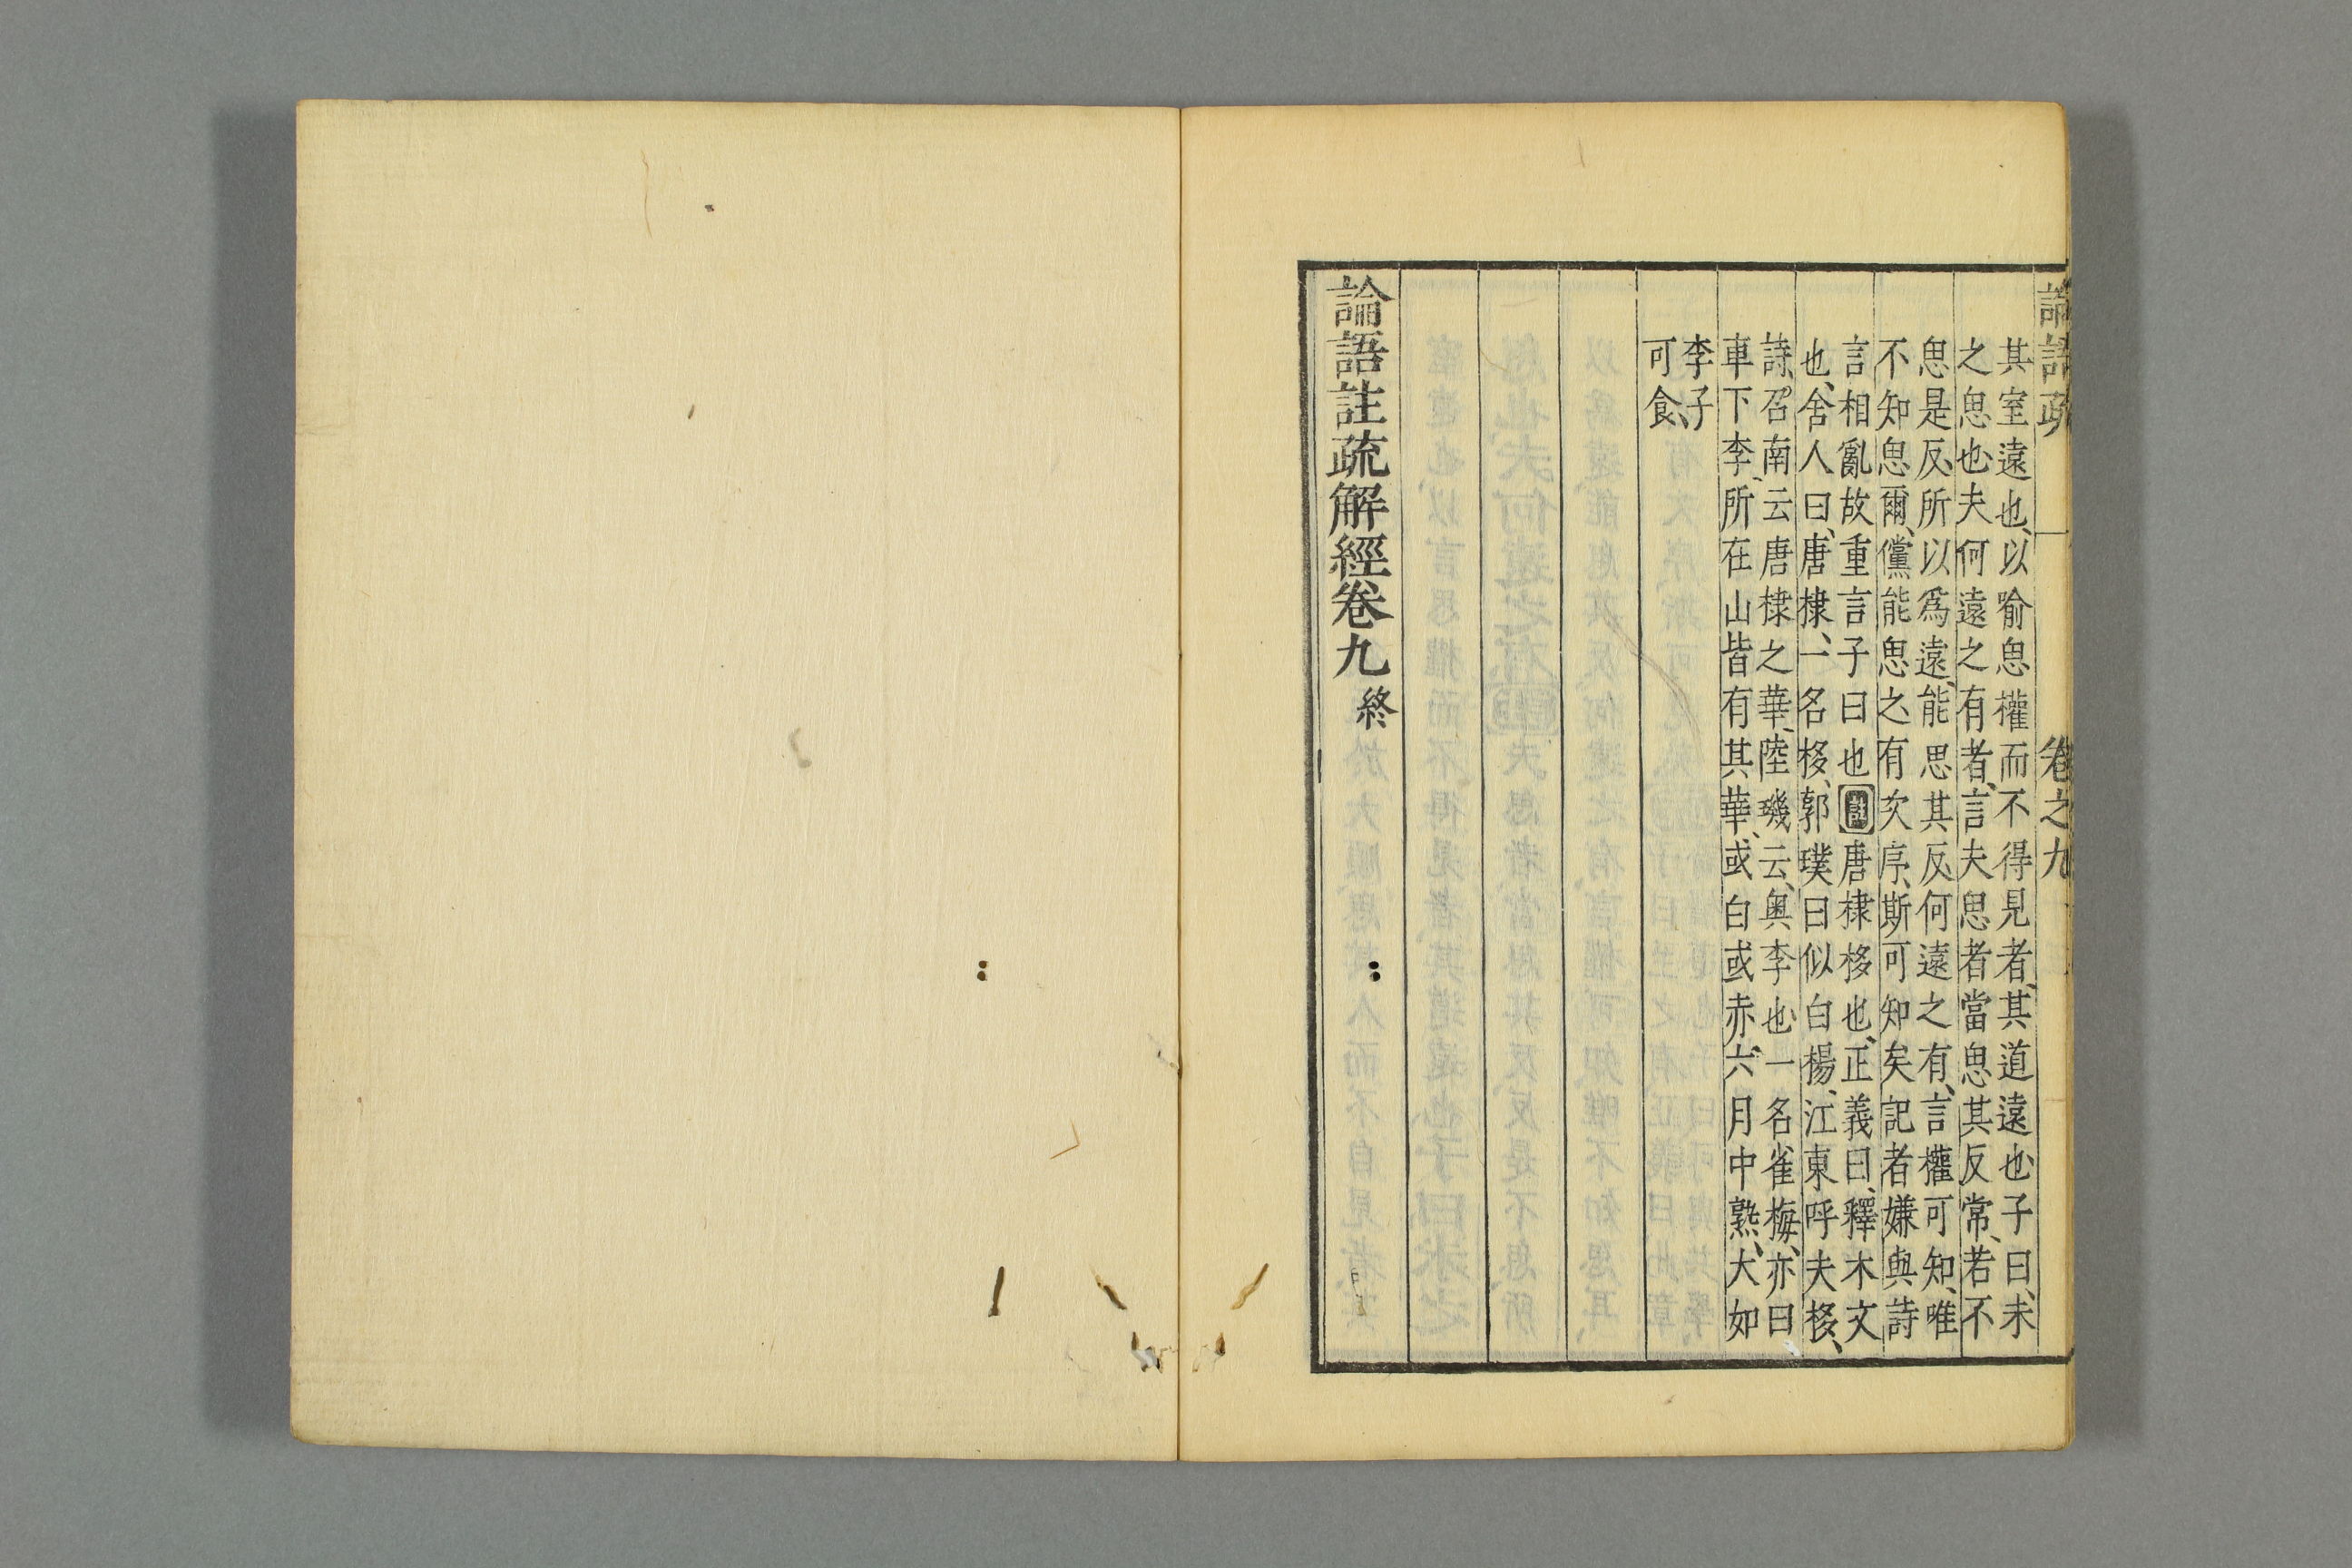 論語疏 卷之九
其室遠也、以喻思權而不得見者、其道遠也、子曰、未
之思也、夫何遠之有者、言夫思者當思其反常、若不
思是反、所以爲遠、能思其反、何遠之有、言權可知、唯
不知思爾、儻能思之、有次序、斯可知矣記者嫌與詩
言相亂故重言子曰也註唐棣栘也、正義曰、釋木文
也、舍人曰、唐棣、一名栘、郭璞曰似白楊、江東呼夫栘、
詩、召南云唐棣之華、陸璣云、奧李也、一名雀梅、亦曰
車下李、所在山皆有其華、或白或赤、六月中熟、大如
李子、
可食、
論語註疏解經卷九 終